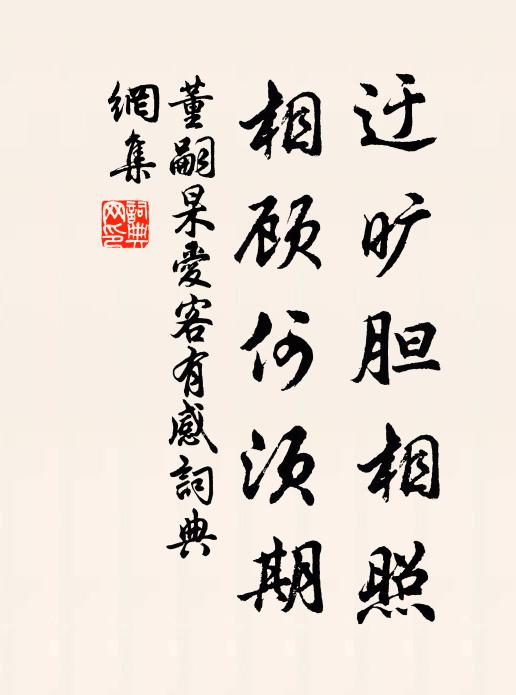 迂旷胆相照
相顾何须期
董嗣杲爱客有感词典
網集
詞典
网印